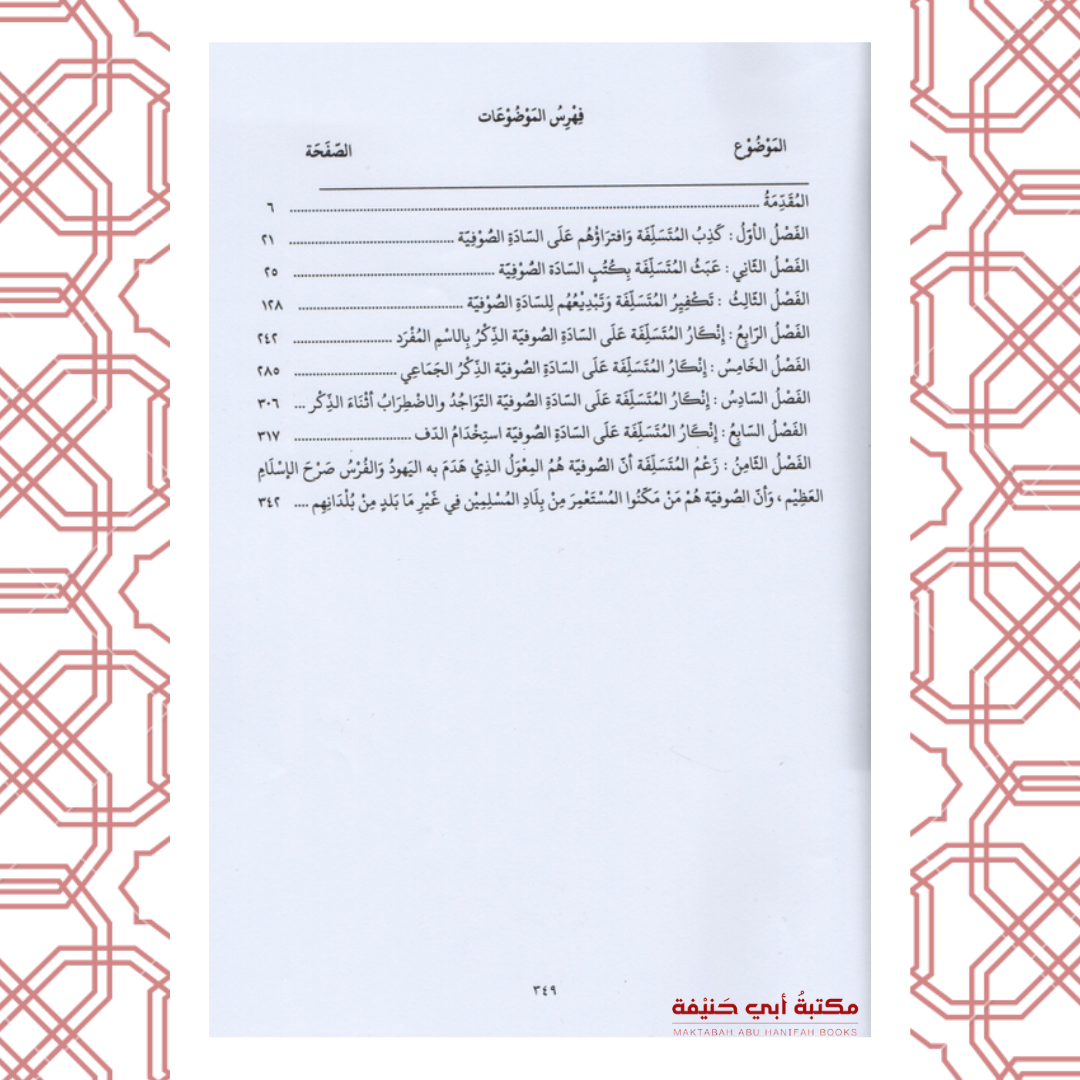 فِهْرِسُ المَوْضُوْعَات
المَوْضُوْع الصّفَحَة
المُقَدِّمَةُ ........ ٦
الفَصْلُ الأوّلُ : كَذِبُ المُتَسَلِّفَة وَافتِرَاؤُهُم عَلَى السّادَةِ الصُّوْفِيّة ........ ٢١
الفَصْلُ الثّانِي : عَبَثُ المُتَسَلِّفَة بِكُتُبِ السّادَة الصُّوْفِيّة ........ ٢٥
الفَصْلُ الثّالِثُ : تَكْفِيِرُ المُتَسَلِّفَة وَتَبْدِيْعُهُم لِلسّادَةِ الصُّوْفيّة ........ ١٢٨
الفَصْلُ الرّابِعُ : إنْكَارُ المُتَسَلِّفَة عَلَى السّادَةِ الصُّوفيّة الذِّكْرُ بِالاسْمِ المُفْرَد ........ ٢٤٢
الفَصْلُ الخَامِسُ : إنْكَارُ المُتَسَلِّفَة عَلَى السّادَةِ الصُّوفيّة الذِّكْرُ الجَمَاعِي ........ ٢٨٥
الفَصْلُ السّادِسُ : إنْكَارُ المُتَسَلِّفَة عَلَى السّادَةِ الصُّوفيّة التّوَاجُدُ والاضْطِرَابُ أثْنَاءَ الذِّكْر ... ٣٠٦
الفَصْلُ السّابِعُ : إنْكَارُ المُتَسَلِّفَة عَلَى السّادَةِ الصُّوفيّة استِخْدَامُ الدّف ........ ٣١٧
الفَصْلُ الثّامِنُ : زَعْمُ المُتَسَلِّفَة أنّ الصُّوفيّة هُمُ المِعْوَلُ الذِيْ هَدَمَ به اليَهودُ وَالفُرْسُ صَرْحَ الإسْلَامِ
العَظِيْم ، وَأنّ الصُّوفيّة هُمْ مَنْ مَكّنُوا المُسْتَعْمِرَ مِنْ بِلَادِ المُسْلِمِيْن فِي غَيْرِ مَا بَلدٍ مِنْ بُلْدَانِهِم .... ٣٤٢
٣٤٩
مكتبةُ أبي حَنيْفة
MAKTABAH ABU HANIFAH BOOKS